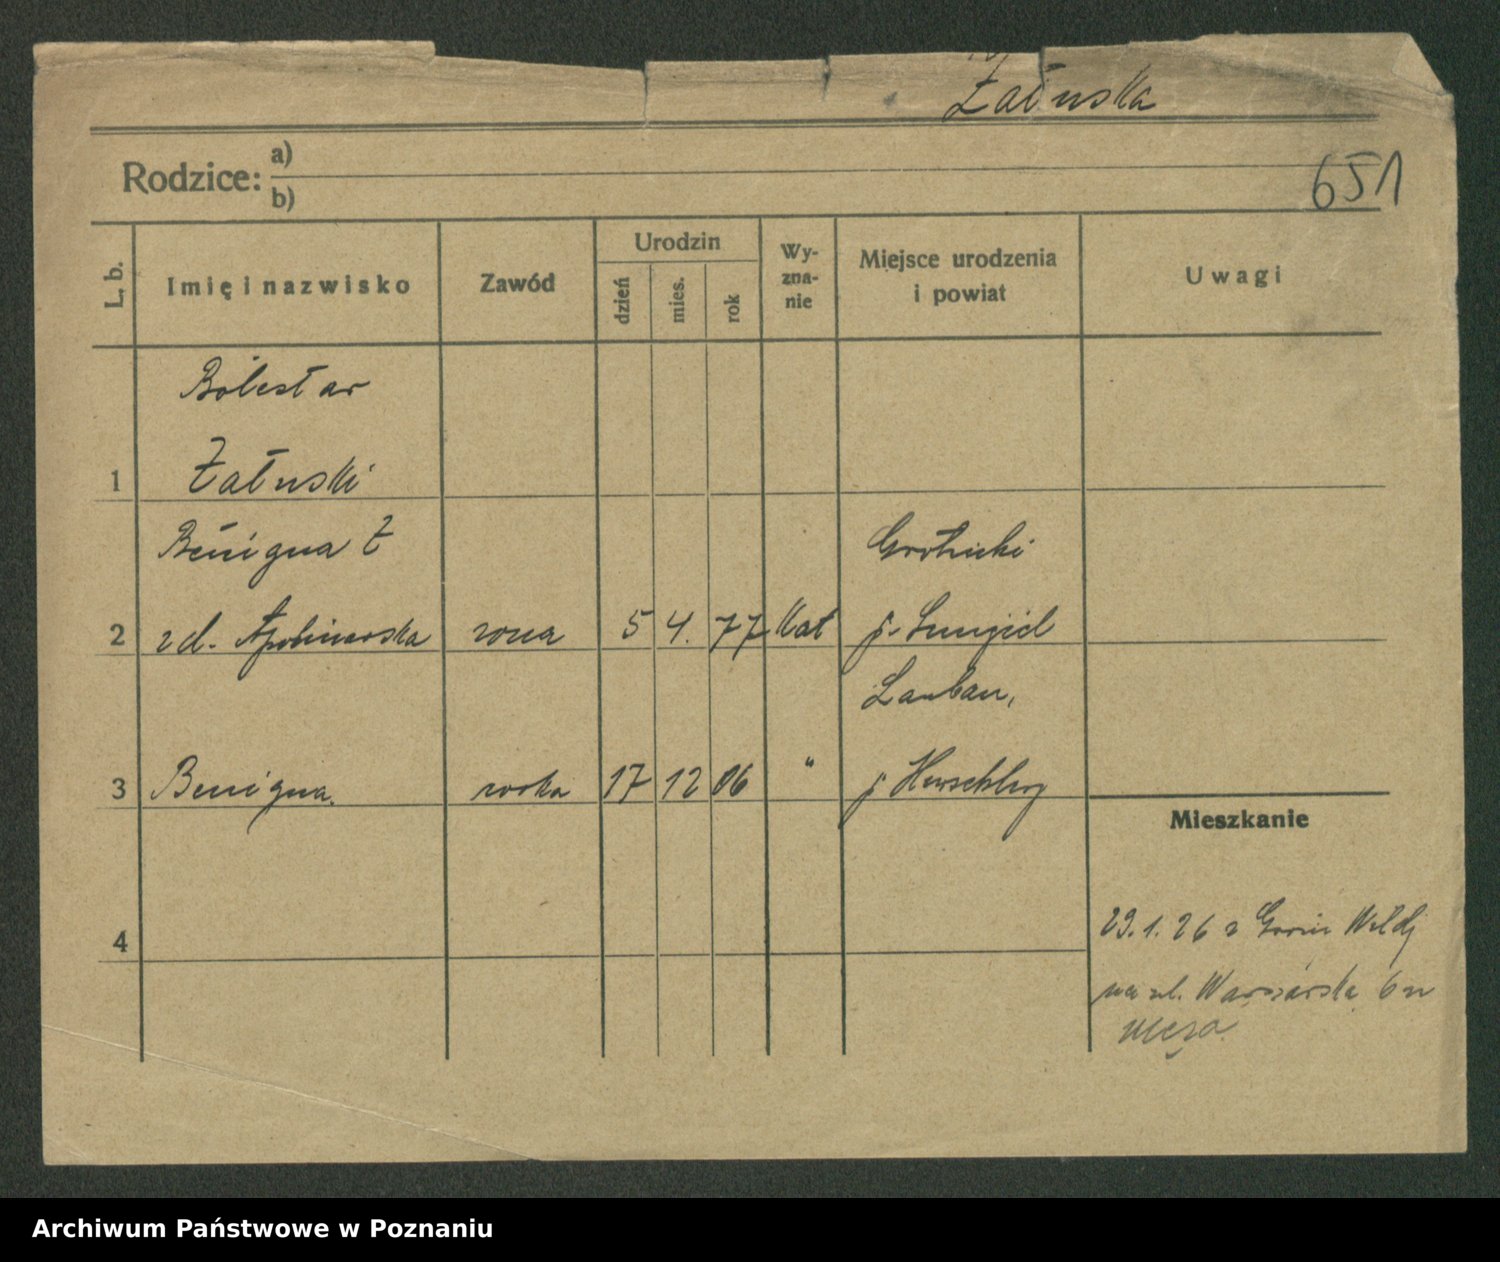 Załuska
651
Rodzice: a)
b)
L. b.
Imię i nazwisko
Zawód
Urodzin
dzień
mies.
rok
Wy-
zna-
nie
Miejsce urodzenia
i powiat
Uwagi
Bolesław
1 Załuski
Benigna Z
Grotniki
2 zd. Apolinarska żona 5 4. 77 Kat p.
Lauban,
3 Benigna. córka 17 12 06 " p Hirschberg
Mieszkanie
4
29.1.26 z
na ul. Warszawska 6 
męża.
Archiwum Państwowe w Poznaniu